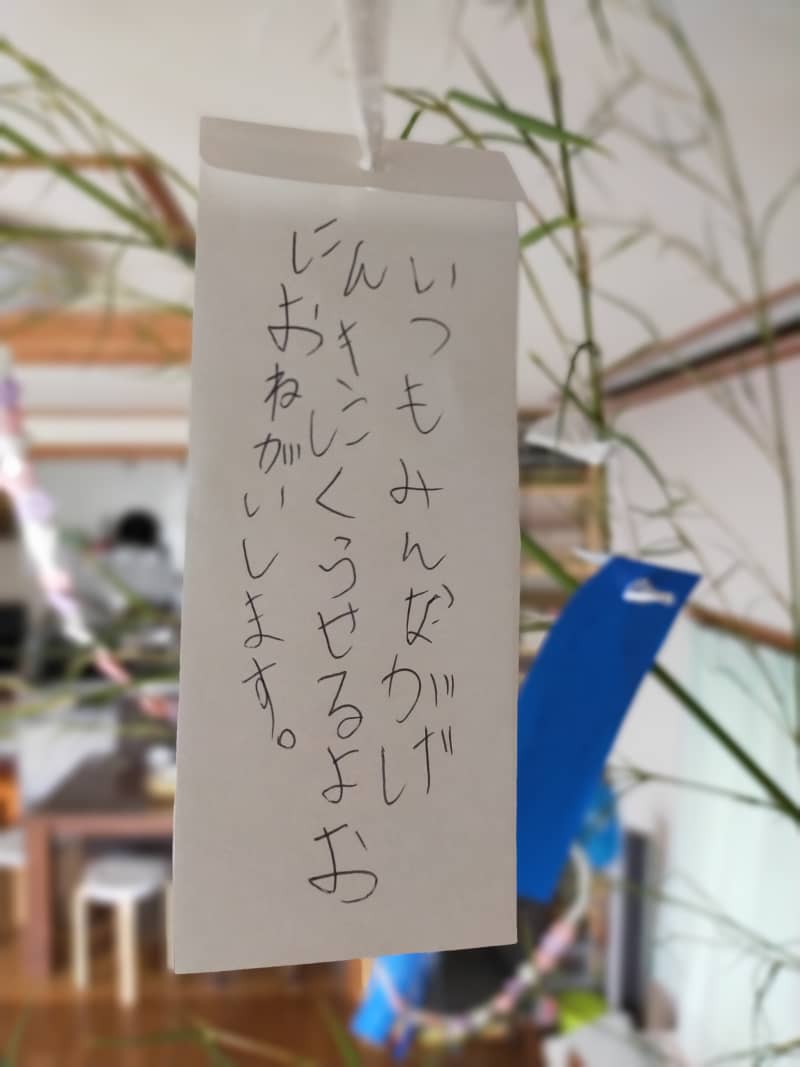 いつもみんながげ
んきにくらせるよお
におねがいします。